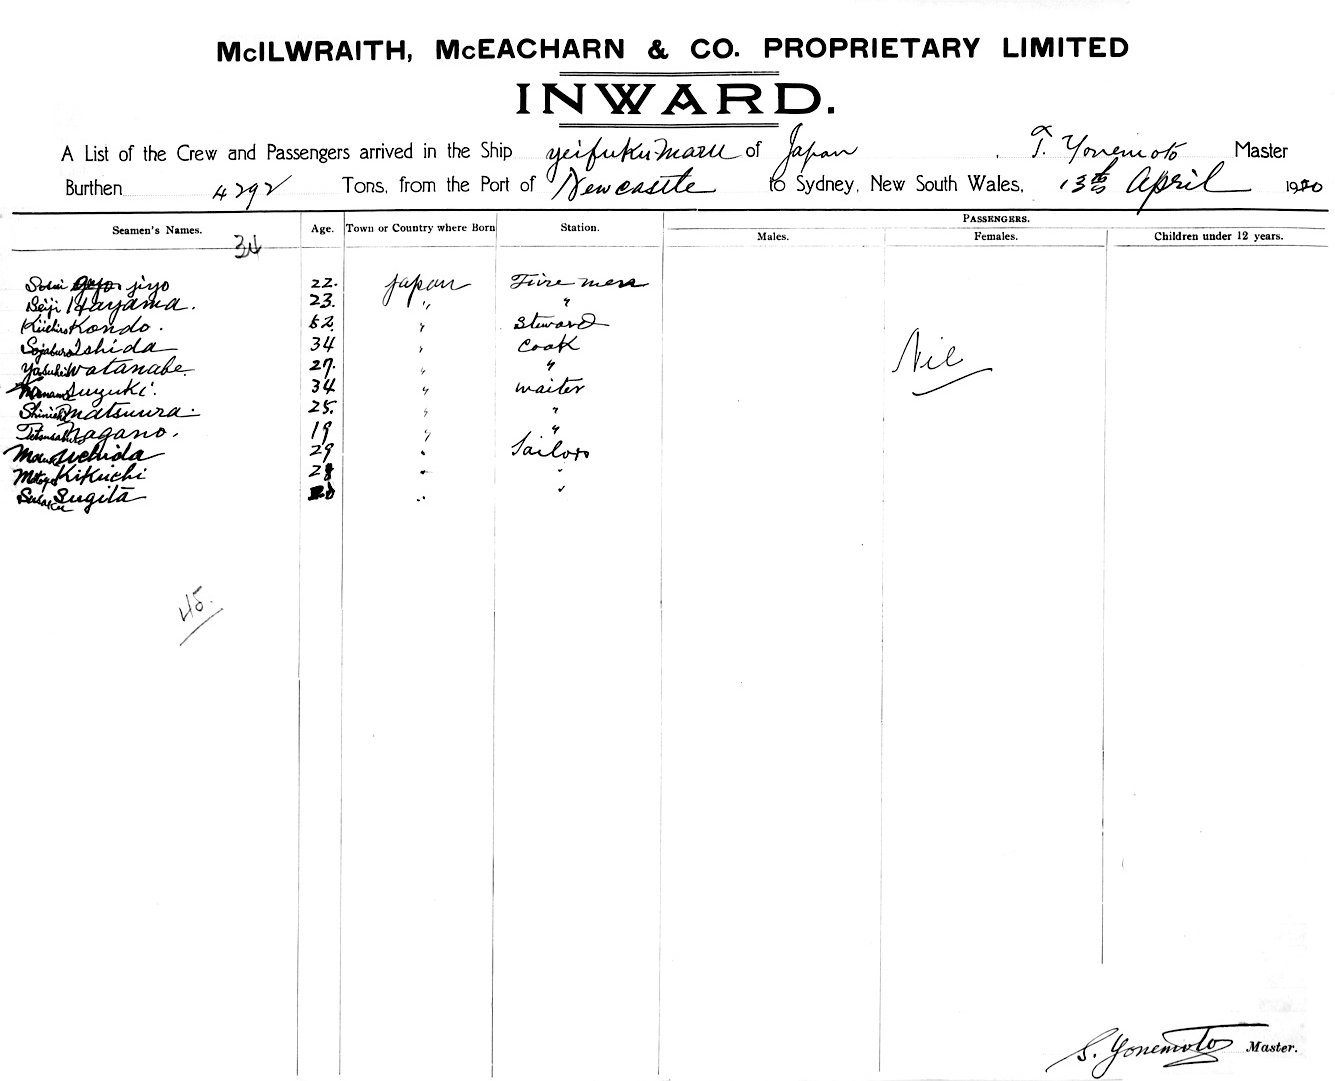 McILWRAITH, McEACHARN & CO. PROPRIETARY LIMITED
INWARD.
A List of the Crew and Passengers arrived in the Ship Yeifuku Maru of Japan , T. Yonemoto Master
Burthen 4292 Tons, from the Port of Newcastle to Sydney, New South Wales, 13th April 1920
PASSENGERS.
Seamen's Names. Age. Town or Country where Born Station. Males. Females. Children under 12 years.
34
jiyo 22. Japan Fire men
Seiji Hayama. 23. " "
Kiichiro Kondo. 52. " Steward
Ishida 34 " Cook
Watanabe. 27. " "
Suzuki. 34 " Waiter
Matsuura. 25. " "
Nagano. 19 " "
Uchida 29 " Sailors
Kikuchi 28 " "
Sugita " "
Nil
45.
S. Yonemoto Master.